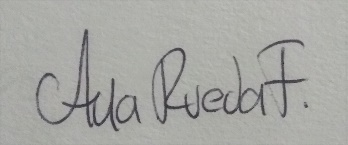 Ana Rueda F.